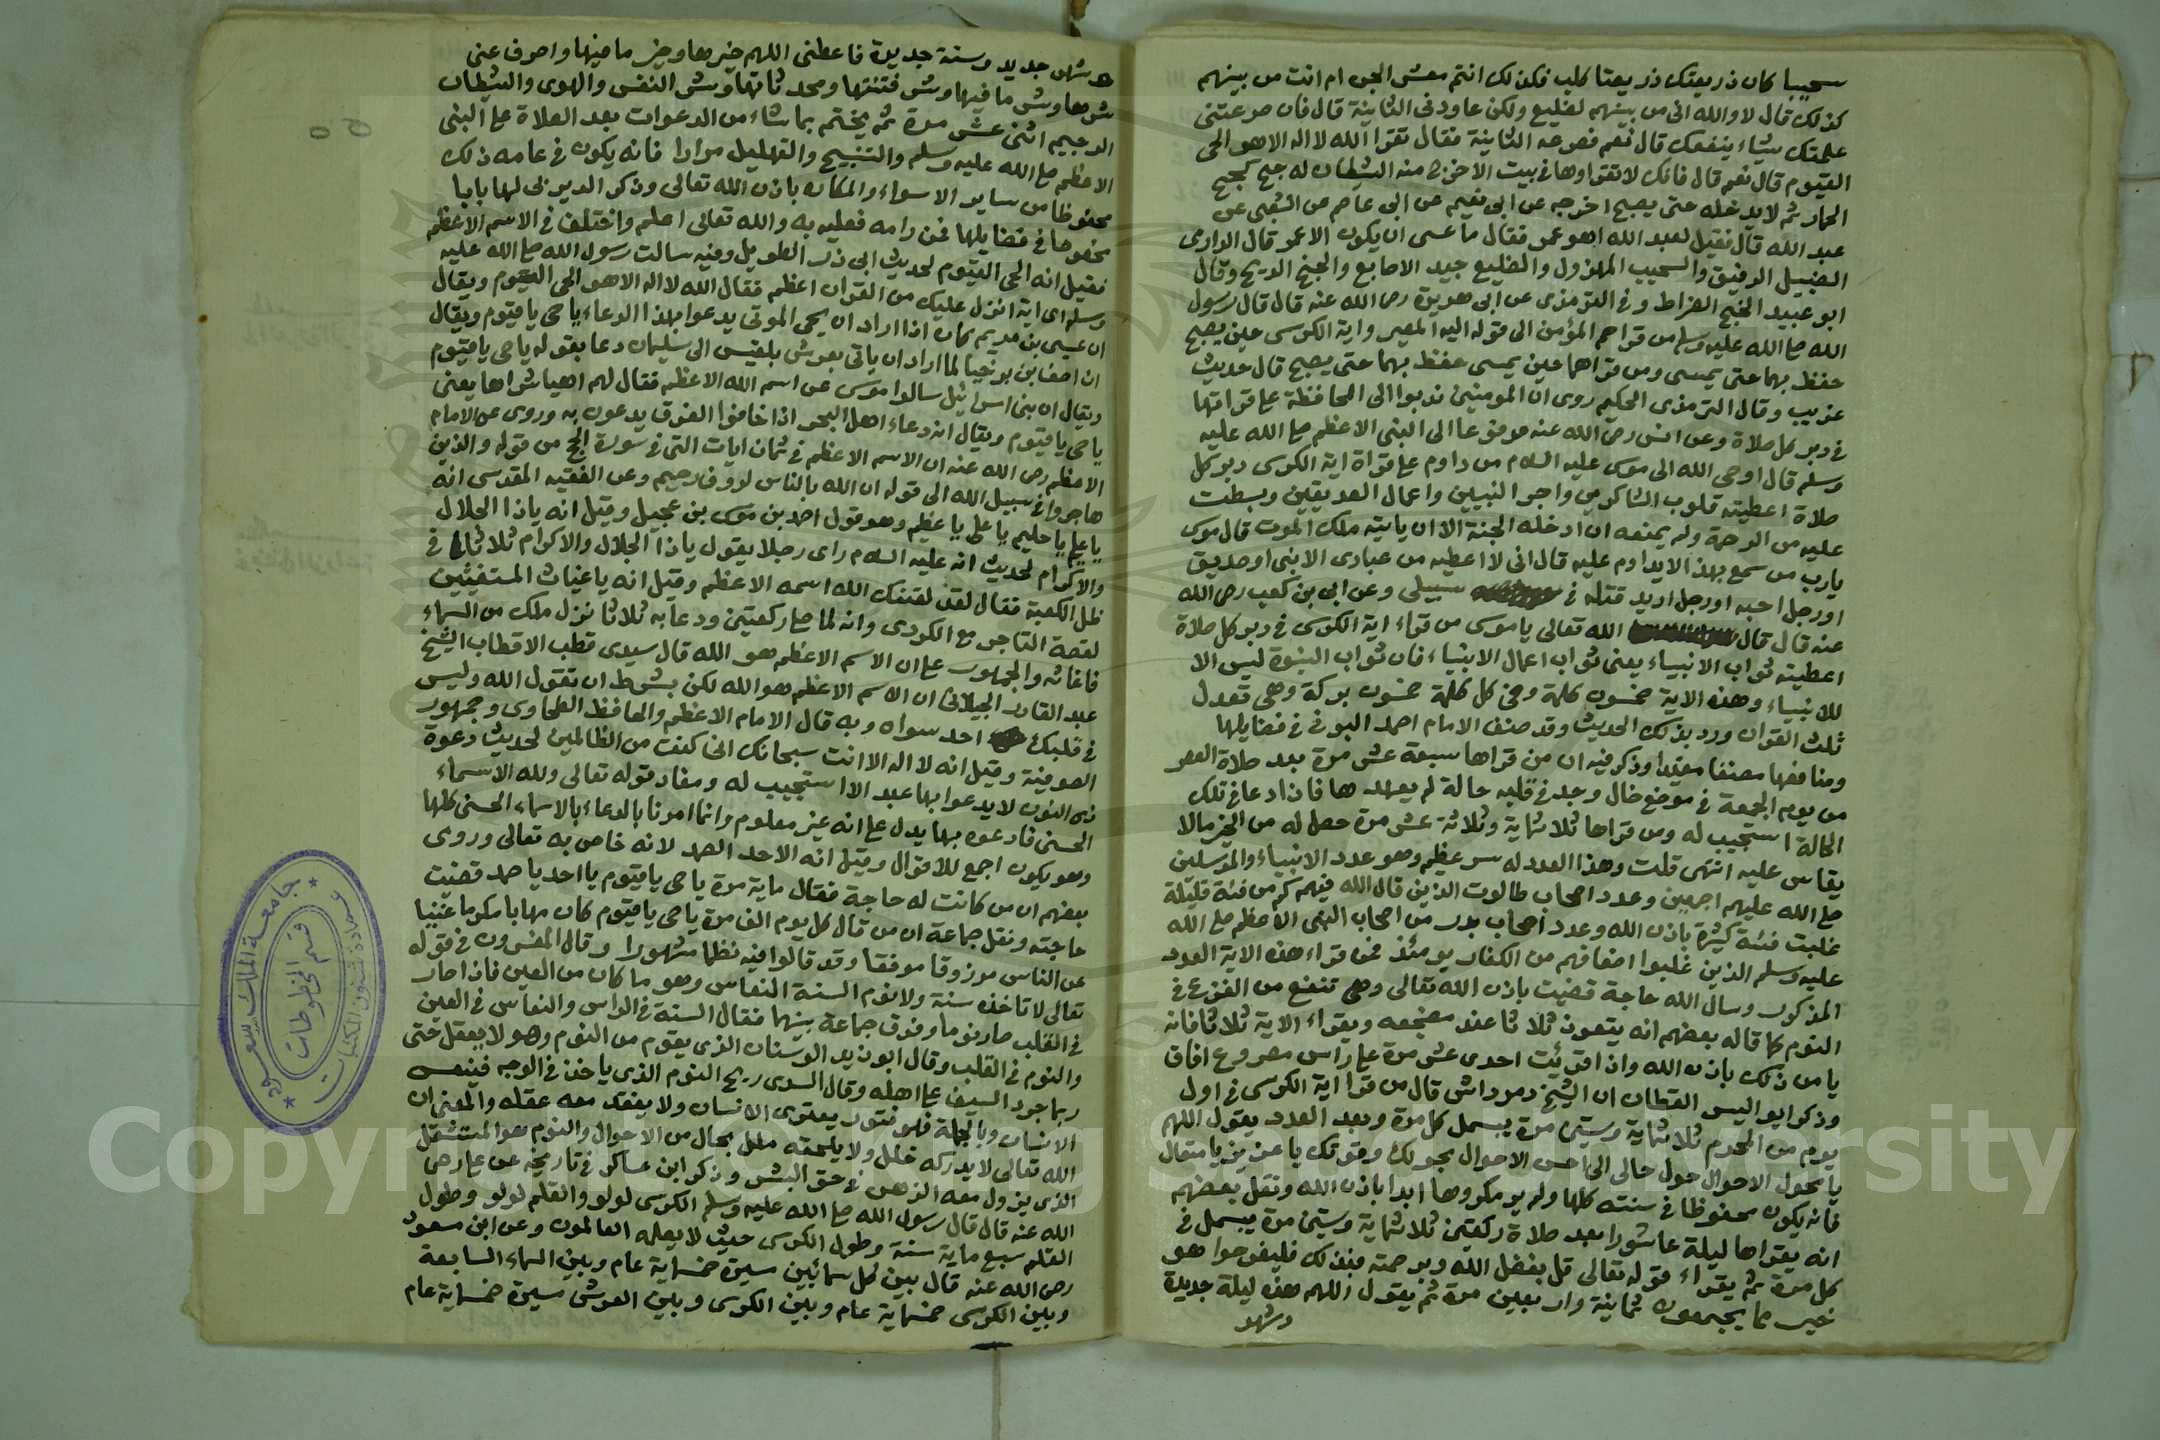 سحيبا كان ذريعتك ذريعتا كلب فكذلك انتم معشر الجن ام انت من بينهم
كذلك قال لا والله انى من بينهم لضليع ولكن عاودنى الثانية قال فان صرعتنى
علمتك شياء ينفعك قال نعم فصرعه الثانية فقال تقرا الله لا اله الا هو الحى
القيوم قال نعم قال فانك لا تقراوها فى بيت الا خرج منه الشيطان له خبج كخبج
الحمار ثم لا يدخله حتى يصبح اخرجه عن ابى نعيم عن ابى عاصم عن الشعبى عن
عبد الله قال فقيل لعبد الله اهو عمر فقال ما عسى ان يكون الا عمر قال الدارمى
الضئيل الدقيق والسحيب المهزول والضليع جيد الاضلاع والخبج الريح وقال
ابو عبيد الخبج الضراط وفى الترمذى عن ابى هريرة رضى الله عنه قال قال رسول
الله صلى الله عليه وسلم من قرا حم المؤمن الى قوله اليه المصير واية الكرسى حين يصبح
حفظ بهما حتى يمسى ومن قراهما حين يمسى حفظ بهما حتى يصبح قال حديث
غريب وقال الترمذى الحكيم روى ان المومنين ندبوا الى المحافظة على قراتها
فى دبر كل صلاة وعن انس رضى الله عنه مرفوعا الى النبى الاعظم صلى الله عليه
وسلم قال اوحى الله الى موسى عليه السلام من داوم على قراة اية الكرسى دبر كل
صلاة اعطيته قلوب الشاكرين واجر النبيين واعمال الصديقين وبسطت
عليه من الرحمة ولم يمنعه ان ادخله الجنة الا ان ياتيه ملك الموت قال موسى
يارب من سمع بهذا لا يداوم عليه قال انى لا اعطيه من عبادى الا نبى او صديق
او رجل احبه او رجل اريد قتله فى سبيلى وعن ابى بن كعب رضى الله
عنه قال قال الله تعالى يا موسى من قراء اية الكرسى فى دبر كل صلاة
اعطيته ثواب الانبيياء يعنى ثواب اعمال الانبياء فان ثواب النبوة ليس الا
للانبياء وهذه الاية خمسون كلمة وفى كل كلمة خمسون بركة وهى تعدل
ثلث القران ورد بذلك الحديث وقد صنف الامام احمد البونى فى فضايلها
ومنافعها مصنفا مفيدا وذكر فيه ان من قراها سبعة عشر مرة بعد صلاة العصر
من يوم الجمعة فى موضع خال وجد فى قلبه حالة لم يعهدها فان دعا فى تلك
الحالة استجيب له ومن قراها ثلاثماية وثلاثة عشر مرة حصل له من الخير مالا
يقاس عليه انتهى قلت وهذا العدد له سر عظيم وهو عدد الانبياء والمرسلين
صلى الله عليهم اجمعين وعدد اصحاب طالوت الذين قال الله فيهم كم من فئة قليلة
غلبت فئة كثيرة باذن الله وعدد اصحاب بدر من اصحاب النبى الاعظم صلى الله
عليه وسلم الذين غلبوا اضعافهم من الكفار يومئذ فمن قراء هذه الاية العدد
المذكور وسال الله حاجة قضيت باذن الله تعالى وهى تنفع من الفزع فى
النوم كما قاله بعضهم انه يتعوذ ثلاثا عند مضجعه ويقراء الاية ثلاثا فانه
يا من ذلك باذن الله وان اقرئت احدى عشر مرة على راس مصروع افاق
وذكر ابو اليس القطان ان الشيخ دمرداش قال من قرا اية الكرسى فى اول
يوم من المحرم ثلاثماية وستين مرة يبسمل كل مرة وبعد العدد يقول اللهم
يا محول الاحوال حول حالى الى احسن الاحوال بحولك وقوتك يا عزيز يا متعال
فانه يكون محفوظا فى سنته كلها ولم ير مكروها ابدا باذن الله ونقل بعضهم
انه يقراها ليلة عاشورا بعد صلاة ركعتين ثلاثماية وستين مرة يبسمل فى
كل مرة ثم يقراء قوله تعالى قل بفضل الله وبرحمته فبذلك فليفرحوا هو
خير مما يجمعون ثمانية واربعين مرة ثم يقول اللهم هذه ليلة جديدة
وشهر
وشهر جديد وسنة جديدة فاعطنى اللهم خيرها وخير ما فيها واصرف عنى
شرها وشر ما فيها وشر فتنتها ومحدثاتها وشر النفس والهوى والشيطان
الرجيم اثنى عشر مرة ثم يختم بما شاء من الدعوات بعد الصلاة على النبى
الاعظم صلى الله عليه وسلم والتسبيح والتهليل مرارا فانه يكون فى عامه ذلك
محفوظا من ساير الاسواء والمكاره باذن الله تعالى وذكر الديربى لها بابا
مخصوصا فى فضايلها فمن رامه فعليه به والله تعالى اعلم واختلف فى الاسم الاعظم
فقيل انه الحى القيوم لحديث ابى ذر الطويل وفيه سالت رسول الله صلى الله عليه
وسلم اى اية انزل عليك من القران اعظم فقال الله لا اله الا هو الحى القيوم ويقال
ان عيسى بن مريم كان اذا اراد ان يحى الموتى يدعوا بهذا الدعاء يا حى يا قيوم ويقال
ان اصف بن برخيا لما اراد ان ياتى بعرش بلقيس الى سليمان دعا بقوله يا حى يا قيوم
ويقال ان بنى اسرائيل سالوا موسى عن اسم الله الاعظم فقال لهم اهيا شراهيا يعنى
يا حى يا قيوم ويقال انه دعاء اهل البحر اذا خافوا الغرق يدعون به وروى عن الامام
الاعظم رضى الله عنه ان الاسم الاعظم فى ثمان ايات التى فى سورة الحج من قوله والذين
هاجروا فى سبيل الله الى قوله ان الله بالناس لرووف رحيم وعن الفقيه المقدسى انه
يا عليم يا حليم يا على يا عظيم وهو قول احمد بن موسى بن عجيل وقيل انه ياذا الجلال
والاكرام لحديث انه عليه السلام راى رجلا يقول ياذا الجلال والاكرام ثلاثا فى
ظل الكعبة فقال لقد لقنك الله اسمه الاعظم وقيل انه يا غياث المستغيثين
لقصة التاجر مع الكردى وانه لما صلى ركعتين ودعا به ثلاثا نزل ملك من السماء
فاغاثه والجمهور على ان الاسم الاعظم هو الله قال سيدى قطب الاقطاب الشيخ
عبد القادر الجيلانى ان الاسم الاعظم هو الله لكن بشرط ان تقول الله وليس
فى قلبك احد سواه وبه قال الامام الاعظم والحافظ الطحاوى وجمهور
الصوفية وقيل انه لا اله الا انت سبحانك انى كنت من الظالمين لحديث دعوة
ذى النون لا يدعوا بها عبد الا استجيب له ومفاد قوله تعالى ولله الاسماء
الحسنى فادعوه بها يدل على انه غير معلوم وانما امرنا بالدعاء بالاسماء الحسنى كلها
وهو يكون اجمع للاقوال وقيل انه الاحد الصمد لانه خاص به تعالى وروى
بعضهم ان من كانت له حاجة فقال ماية مرة يا حى يا قيوم يا احد يا صمد قضيت
حاجته ونقل جماعة ان من قال كل يوم الف مرة يا حى يا قيوم كان مهابا مكرما غنيا
عن الناس مرزوقا موفقا وقد قالوا فيه نظما مشهورا وقال المفسرون فى قوله
تعالى لا تاخذه سنة ولا نوم السنة النعاس وهو ما كان من العين فاذا صار
فى القلب صار نوما وفرق جماعة بينهما فقال السنة فى الراس والنعاس فى العين
والنوم فى القلب وقال ابو زيد الوسنان الذى يقوم من النوم وهو لا يعقل حتى
ربما جرد السيف على اهله وقال السدى ريح النوم الذى ياخذ فى الوجه فينعس
الانسان وبالجملة فهو فتور يعترى الانسان ولا يفقد معه عقله والمعنى ان
الله تعالى لا يدركه خلل ولا يلحقه ملل بحال من الاحوال والنوم هو المستثقل
الذى يزول معه الذهن فى حق البشر وذكر ابن عساكر فى تاريخه عن على رضى
الله عنه قال قال رسول الله صلى الله عليه وسلم الكرسى لولو والقلم لولو وطول
القلم سبع ماية سنة وطول الكرسى حيث لا يعلمه العالمون وعن ابن مسعود
رضى الله عنه قال بين كل سمائين مسيرة خمسماية عام وبين السماء السابعة
وبين الكرسى خمسماية عام وبين الكرسى وبين العرش مسيرة خمسماية عام
جامعة الملك سعود
عمادة شئون المكتبات
قسم المخطوطات
Copyright © King Saud University